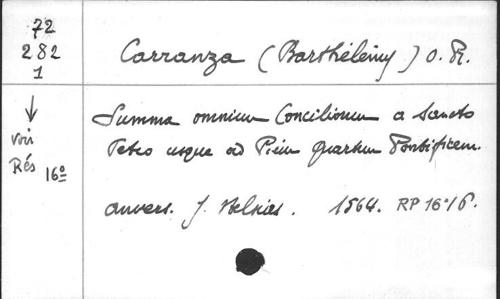 72
282
1
Carranza (Barthélémy) O. P.
↓
Voir
Rés 16º
Summa omnium Conciliorum a Sancto
Petro usque ad Pium Quartum Pontificem.
Anvers. J. 1564. RP 16º16.